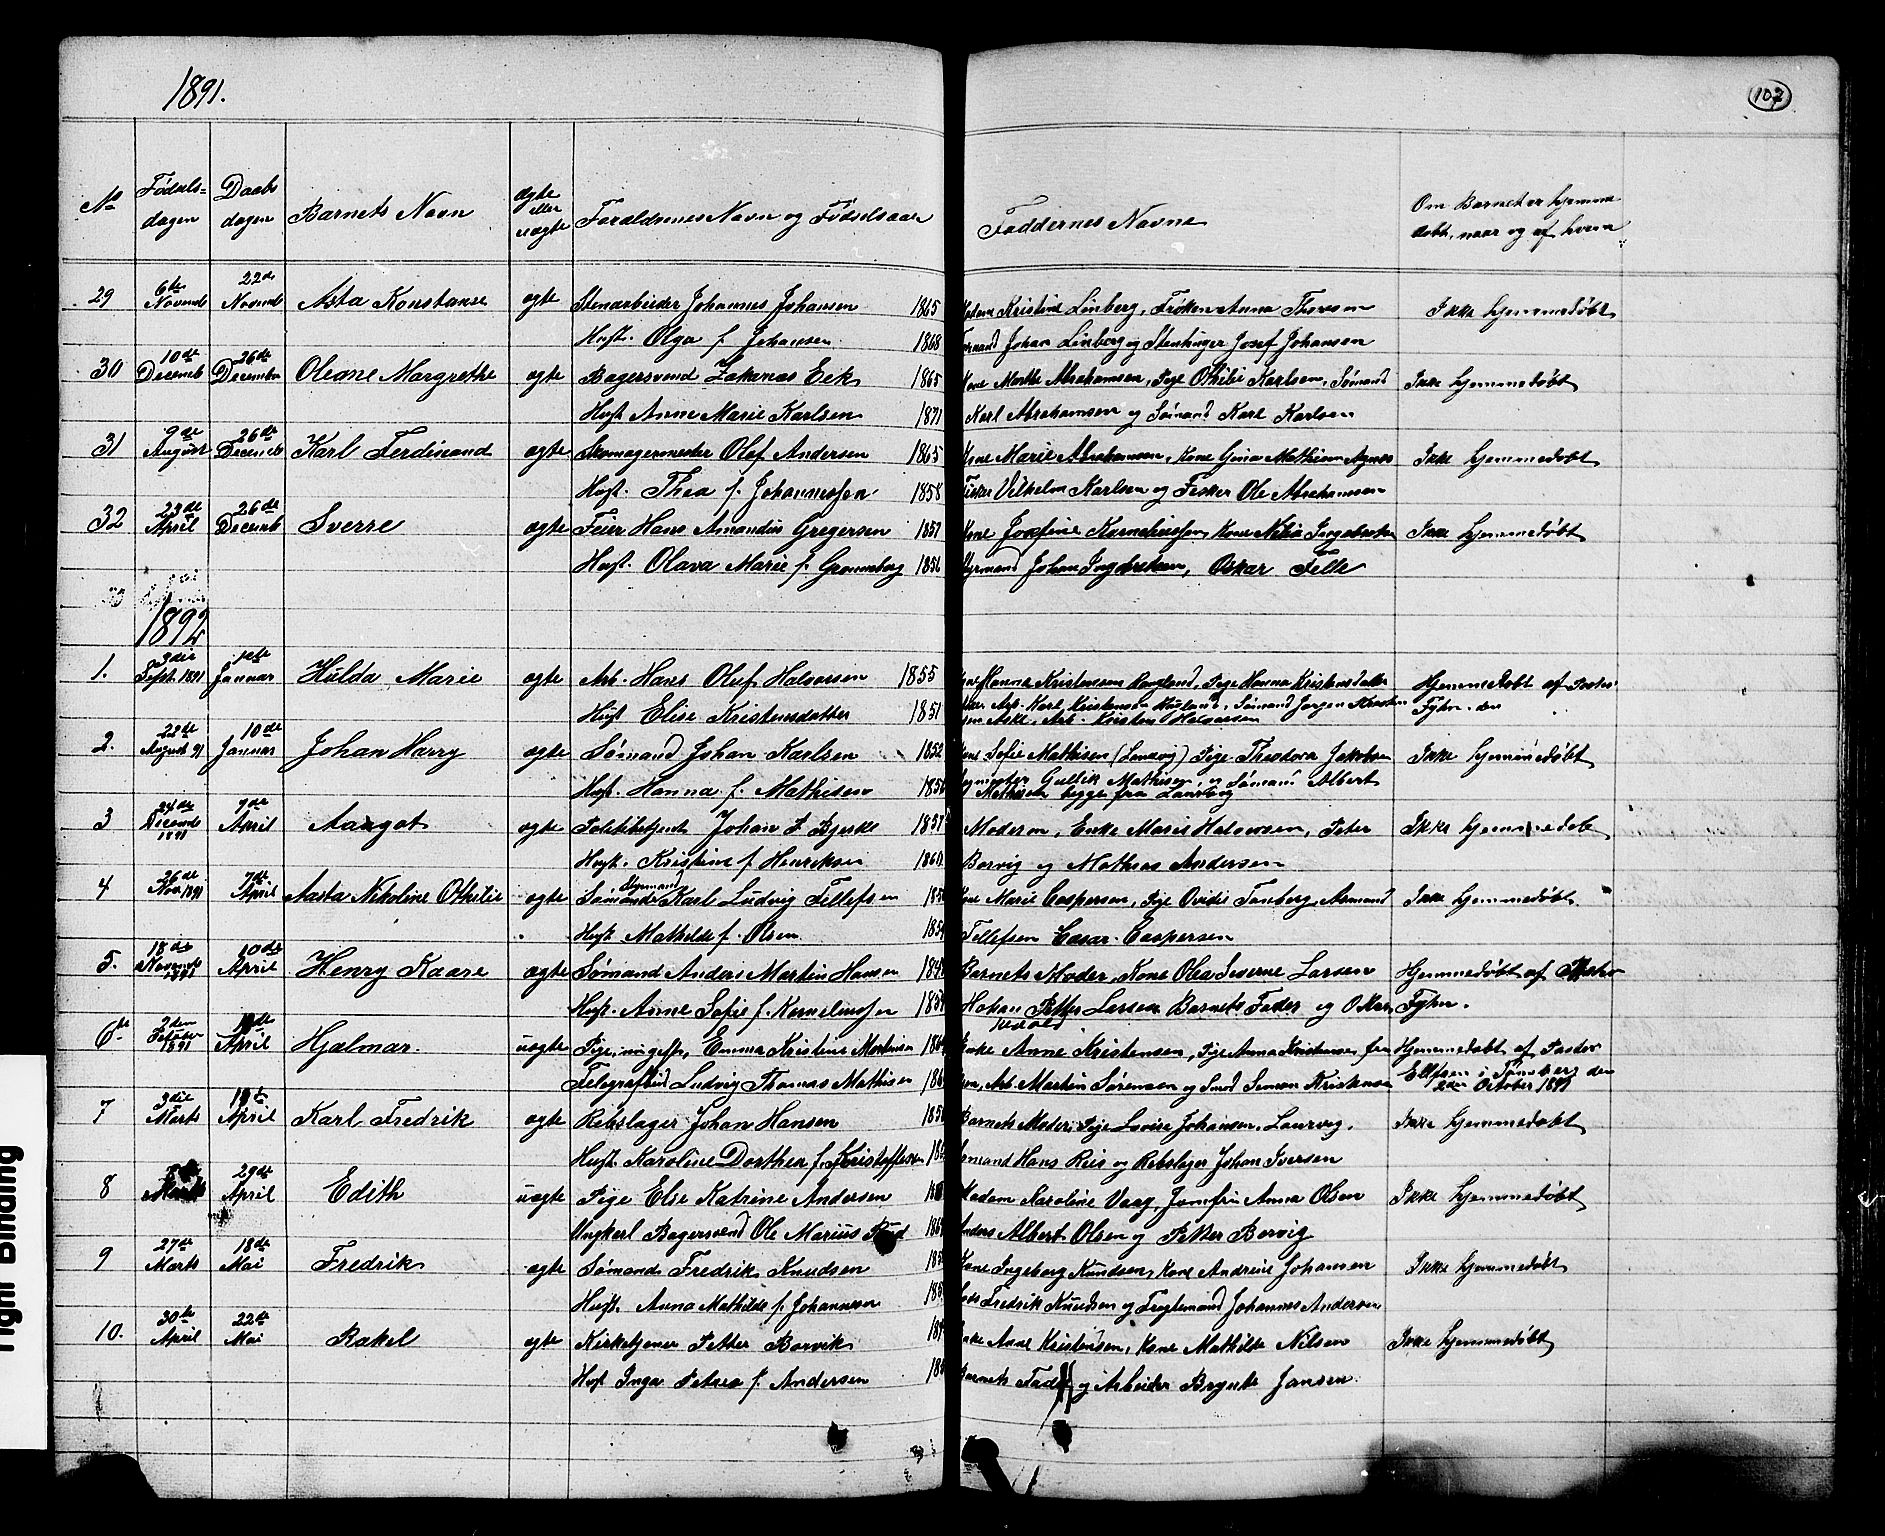 1891.
107
No Fødsels-dagen Daabsdagen Barnets Navn ægte eller uægte Forældrenes Navn og Fødselsaar Faddernes Navne Om Barnet er hjemmedøbt, naar og af hvem
29 6te Novemb 22de Novemb Asta Konstanse ægte Stenarbeider Johannes Johansen 1865 Kristine Linberg, Frøken Anna Thoresen Ikke hjemmedøbt
Hust. Olga f. Johansen 1868 Johan Linberg og Stenhugger Josef Johansen
30 10de Decemb 26de Decembr Oleane Margrethe ægte Bagersvend Zakarias Eek 1865 Kone Marthe Abrahamsen, Pige Othilie Karlsen, Sømand Ikke hjemmedøbt
Hust Anne Marie Karlsen 1871 Karl Abrahamsen og Sømand Karl Karlsen
31 9de August 26de Decemb Karl Ferdinand ægte Skomagermester Olaf Andersen 1865 Kone Marie Abrahamsen, Kone Gina Mathisen Agnes Ikke hjemmedøbt
Hust. Thea f. Johannessen 1858 Fisker Vilhelm Karlsen og Fisker Ole Abrahamsen
32 23de April 26de Decemb Sverre ægte Feier Hans Amandus Gregersen 1857 Kone Josefine Korneliussen, Kone Ingebretsen Ikke hjemmedøbt
Hust. Olava Marie f. Grønneberg 1852 Styrmand Johan Ingebretsen, Oskar Telle
1892
1. 3die Sept. 1891 1ste Januar Hulda Marie ægte Arb. Hans Oluf Halvorsen 1855 Hanna Kristensen Haugland, Pige Hanna Kristensdatter Hjemmedøbt af Pastor
Hust Elise Kristensdatter 1851 Arb. Karl Kristensen, Sømand Jørgen Fyhn. den
Ask, Arb. Kristen Halvorsen
2. 22de August 91 10de Januar Johan Harry ægte Sømand Johan Karlsen 1852 Kone Sofie Mathisen (Laurvig) Pige Theodora Jakobsen Ikke hjemmedøbt
Hust. Hanna f. Mathisen Gullik Mathisen og Sømand Albert
Mathisen begge fra Laurvig
3 24de Decemb 1891 9de April Aaagot ægte Politibetjent Johan P Bjerke 1857 Moderen, Enke Marie Halvorsen, Peter Ikke hjemmedøb
Hust. Kristine f. Henriksen 1860 Borvig og Mathias Andersen
4 26de Nov. 1891 7de April Aasta Nikoline Othilie ægte Sømand Styrmand Karl Ludvig Tellefsen Kone Marie Caspersen, Pige Tønsberg, Ikke hjemmedøbt
Hust Mathilde f. Olsen Tellefsen Cæsar Caspersen
5. 18de Novemb 1891 10de April Henry Kaare ægte Sømand Anders Martin Hansen Barnets Moder, Kone Olea Severine Larsen Hjemmedøbt af Pastor
Hust. Anne Sofie f. Korneliussen Hakon Petter Larsen Barnets Fader og Oskar Fyhn.
6te 1891 April Hjalmar. uægte Pige, Emma Kristine Mortensen Enke Anne Kristensen, Pige Anna Kristensen fra Hjemmedøbt af Pastor
Telegrafbud Ludvig Thomas Mathisen Arb. Martin Sørensen og Smed Simon Kristensen Ellefsen i Tønsberg den
October 1891
7 3die Marts April Karl Fredrik ægte Rebslager Johan Hansen Barnets Moder, Pige Lovise Johansen, Laurvig. Ikke hjemmedøbt
Hust. Karoline Dorthea f. Kristoffersen Hans Reis og Rebslager Johan Iversen
8 Marts 29de April Edith uægte Pige Else Katrine Andersen Madam Karoline Vaag, Jomfru Anna Olsen Ikke hjemmedøbt
Ungkarl Bagersvend Ole Marius Anders Albert Olsen og Petter Borvig
9 27de Marts 18de Mai Fredrik ægte Sømand Fredrik Knudsen Kone Ingeborg Knudsen, Kone Andrine Johansen Ikke hjemmedøbt
Hust. Anna Mathilde f. Johannesen Fredrik Knudsen og Johannes Andersen
10. 30te April 22de Mai Rakel ægte Kirketjener Petter Borvik Enke Anne Kristensen, Kone Mathilde Nilsen Ikke hjemmedøbt
Hust Inga Petrea f. Andersen Barnets Fader og Arbeider Brynte Jansen
Tight Binding